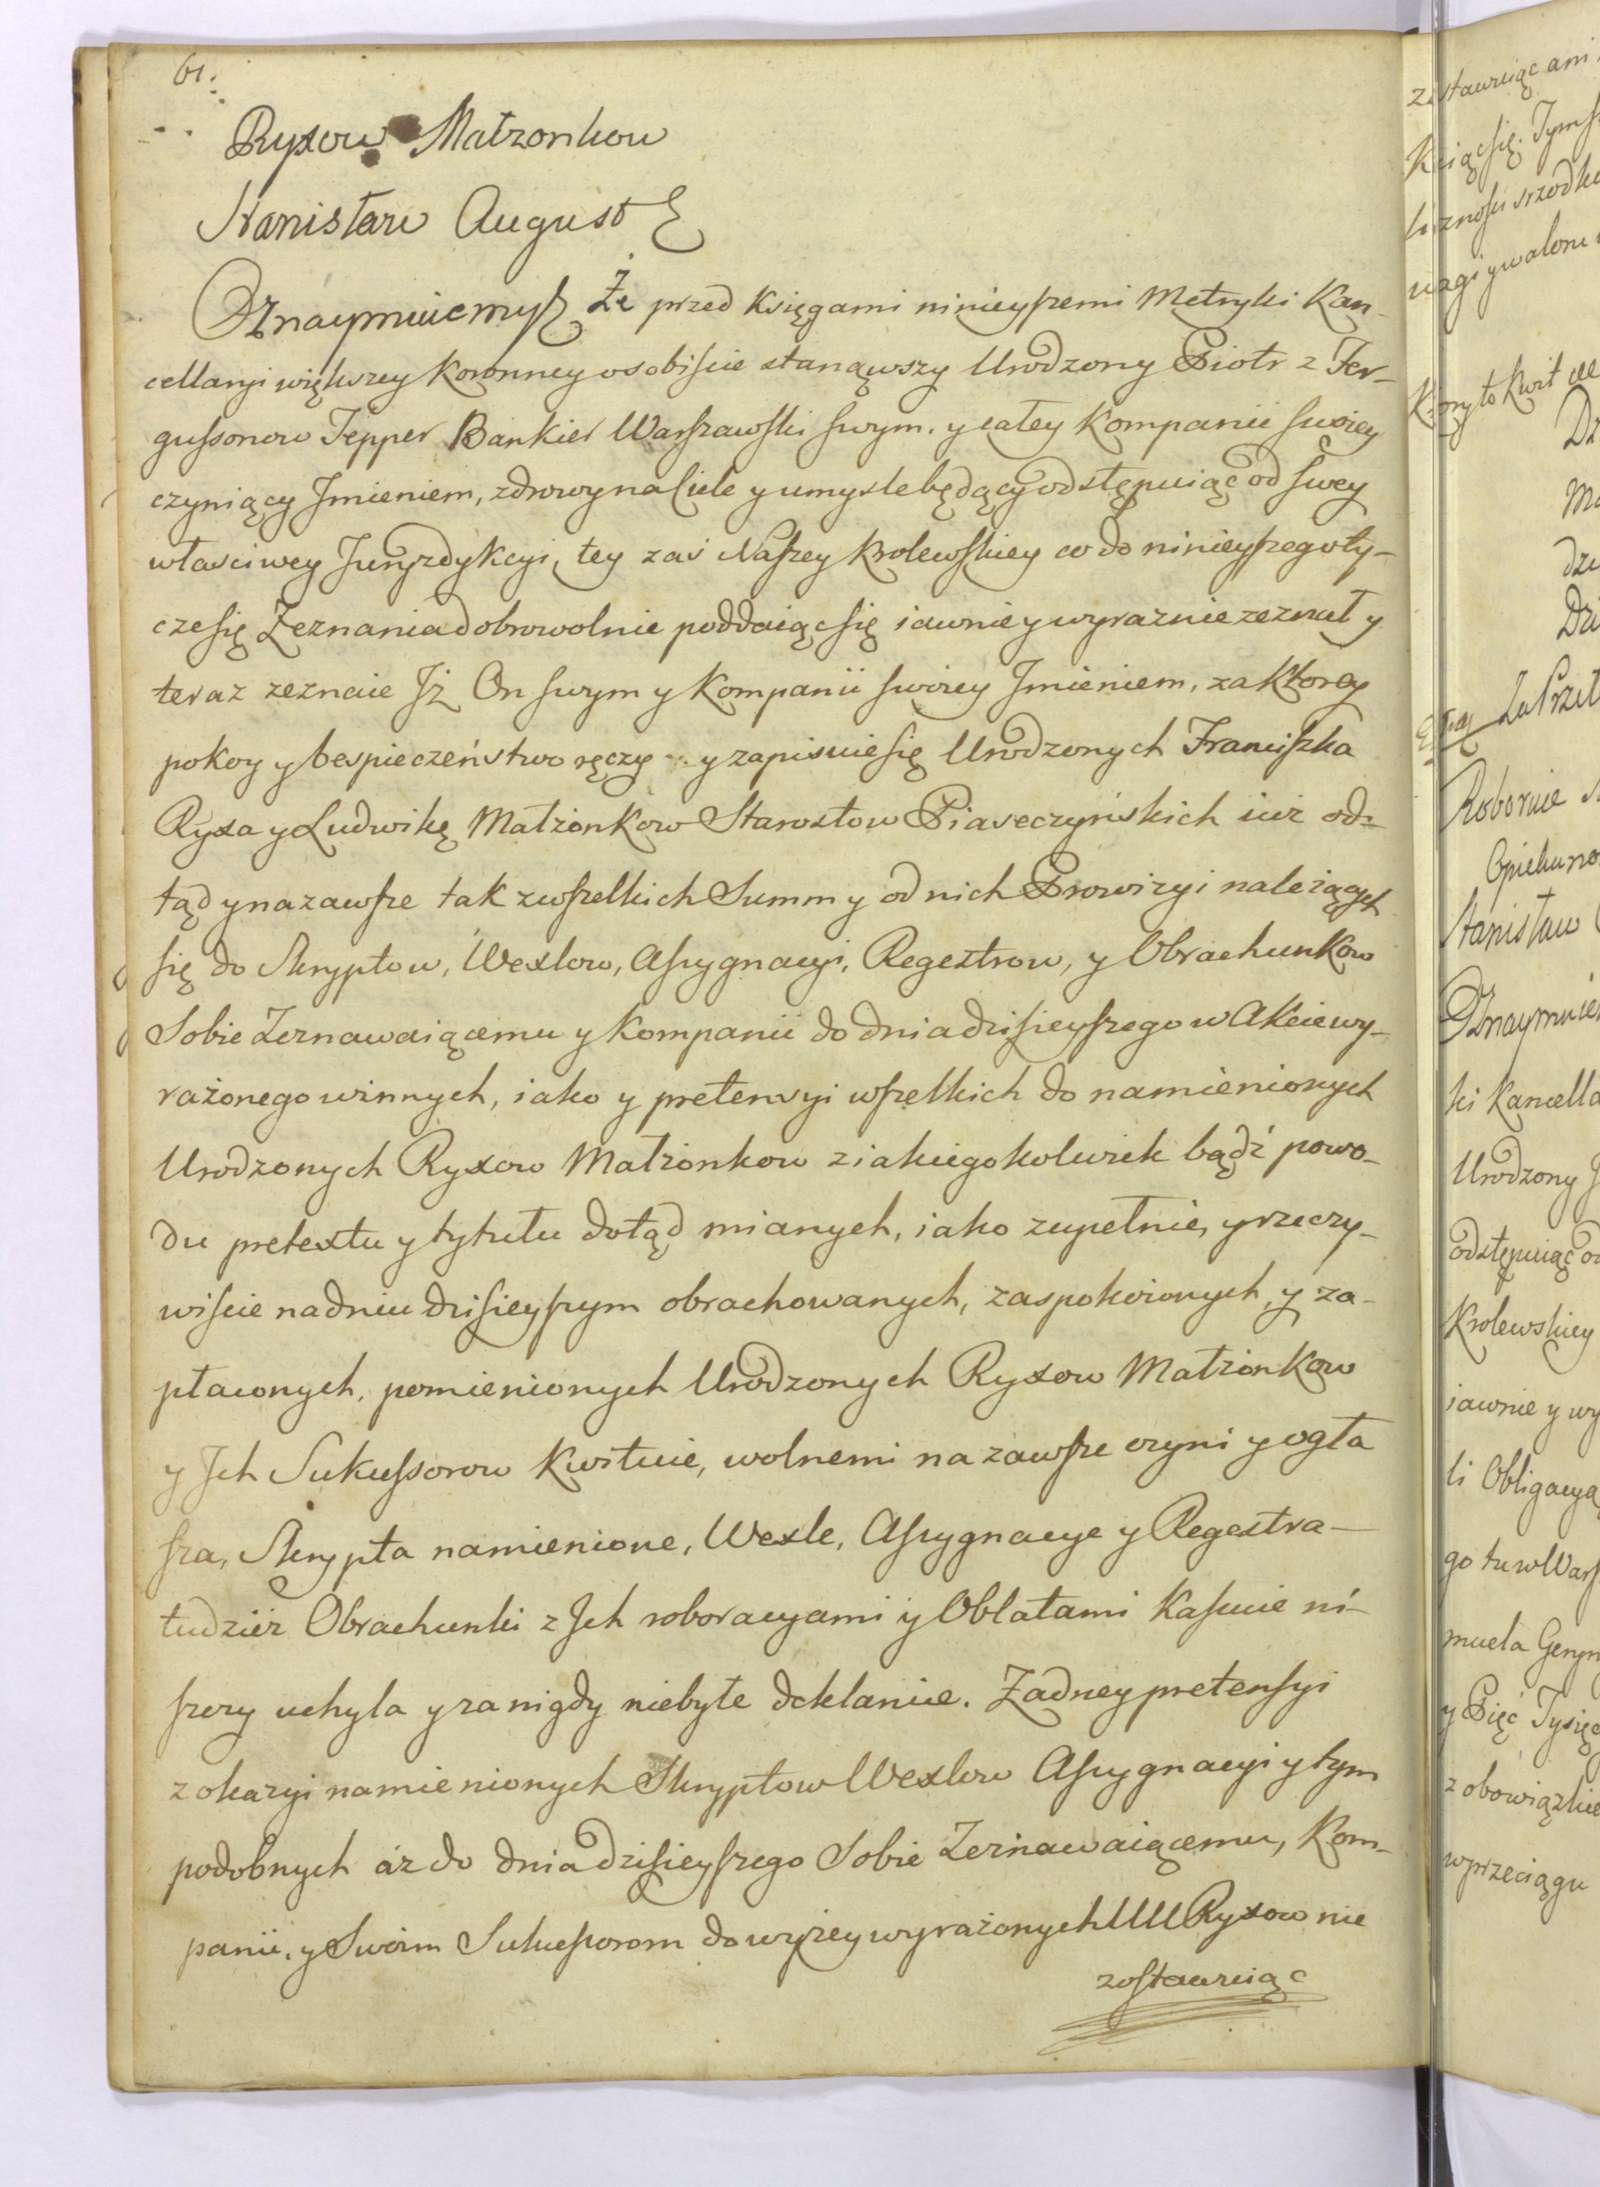 61.
Ryxow Małzonkow
Stanisław August
Oznaymuiemy Że przed Księgami ninieyszemi Metryki Kan-
cellaryi większey Koronney osobiście stanąwszy Urodzony Piotr z Fer-
gussonow Tepper Bankier Warszawski swym. y całey Kompanii swoiey
czyniący Jmieniem, zdrowy na Ciele y umysle będący odstępuiąc od swey
własciwey Juryzdykcyi, tey zaś Naszey Krolewskiey co do ninieyszego ty-
cze się Zeznania dobrowolnie poddaiąc się iawnie y wyraznie zeznał y
teraz zeznaie Jż On swym y Kompanii swoiey Jmieniem, za Ktorey
pokoy y bespieczeństwo ręczy y zapisuie się Urodzonych Franciszka
Ryxa y Ludwikę Małżonkow Starostow Piaseczyńskich iuż od-
tąd y na zawsze tak z wszelkich Summ y od nich Prowizyi należących
się do Skryptow, Wexlow, Assygnacyi, Regestrow, y Obrachunkow
Sobie Zeznawaiącemu y Kompanii do dnia dzisieyszego w Akcie wy-
rażonego winnych, iako y pretensyi wszelkich do namienionych
Urodzonych Ryxow Małżonkow z iakiegokolwiek bądź powo-
du pretextu y tytułu dotąd mianych, iako zupełnie, y rzeczy-
wiscie na dniu dzisieyszym obrachowanych, zaspokoionych, y za-
płaconych, pomienionych Urodzonych Ryxow Małżonkow
y Jch Sukcessorow Kwituie, wolnemi na zawsze czyni y ogła
sza, Skrypta namienione, Wexle, Assygnacye y Regestra-
tudzież Obrachunki z Jch roboracyami y Oblatami Kassuie ni-
szczy uchyla y za nigdy niebyłe deklaruie. Żadney pretensyi
z okazyi namienionych Skryptow Wexlow Assygnacyi y tym
podobnych aż do dnia dzisieyszego Sobie Zeznawaiącemu, Kom-
panii, y Swoim Sukcessorom do wyżey wyrażonych UUU Ryxow nie
zostawuiąc
zostawuiąc ani
Stanisław
Oznaymuie
ki Kancella
Urodzony
odstępuiąc od
Krolewskiey
iawnie y wy
li Obligacyą
go tu w Wars
y Pięć Tysięc
z obowiązkie
w przeciągu